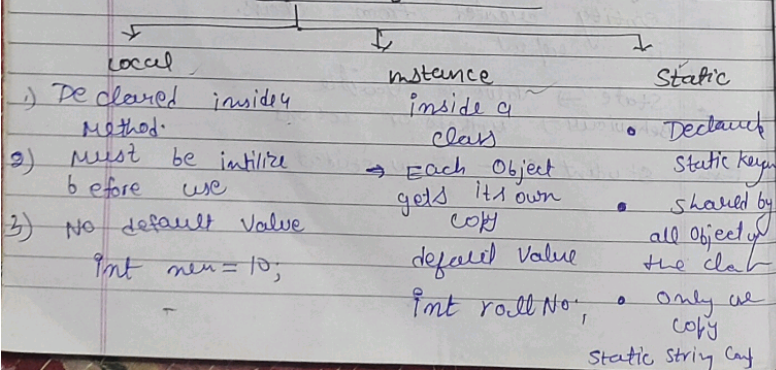 Local
1) Declared inside a
Method.
2) Must be intilize
before use
3) No default value
int nem = 10;
instance
inside a
class
→ Each Object
gets its own
copy
default value
int roll No;
Static
• Declared
Static
• shared by
all Object of
the class
• only one
copy
Static String